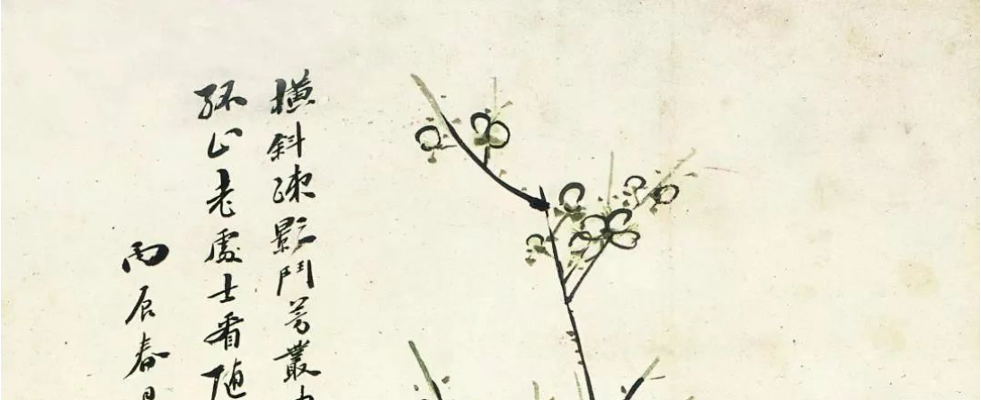 橫斜疎影鬥芳叢
孤山老處士看隨
丙辰春